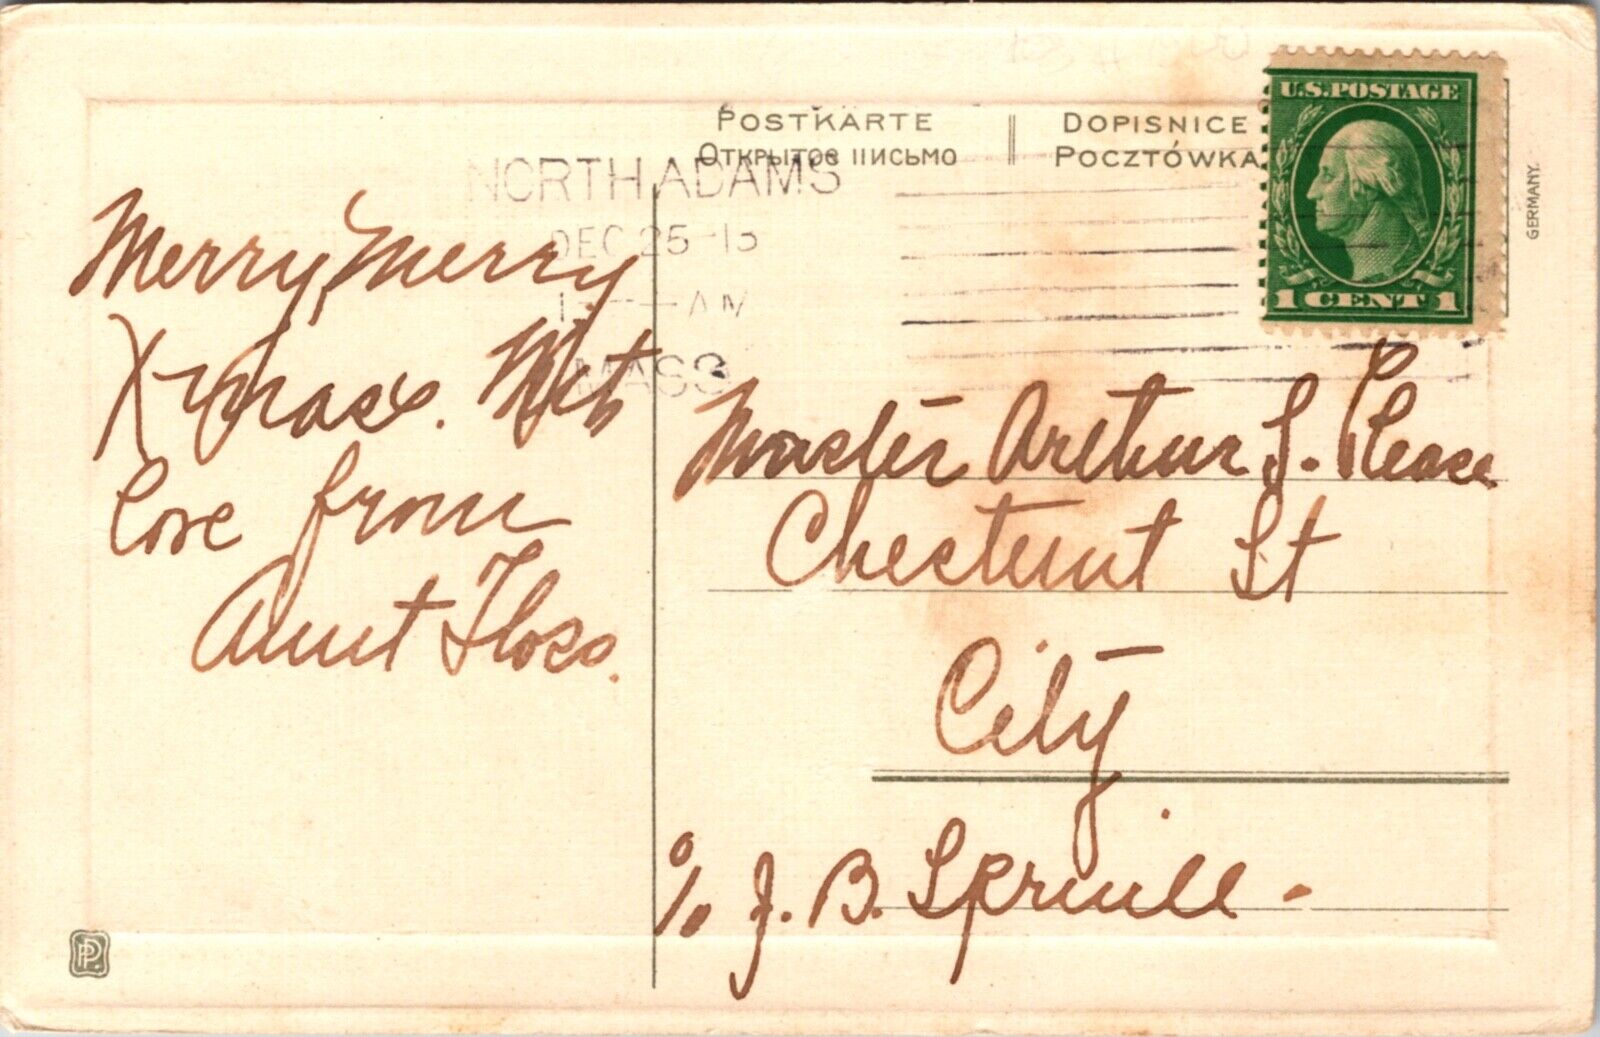 POSTKARTE
DOPISNICE
Открытое письмо
POCZTÓWKA
U.S. POSTAGE
1 CENT 1
GERMANY.
NORTH ADAMS
DEC 25 -13
AM
MASS
Merry, Merry
X-mass. With
love from
Aunt Floss.
Master Arthur S. Please
Chestnut St
City
c/o J. B. Spruill -
PP.